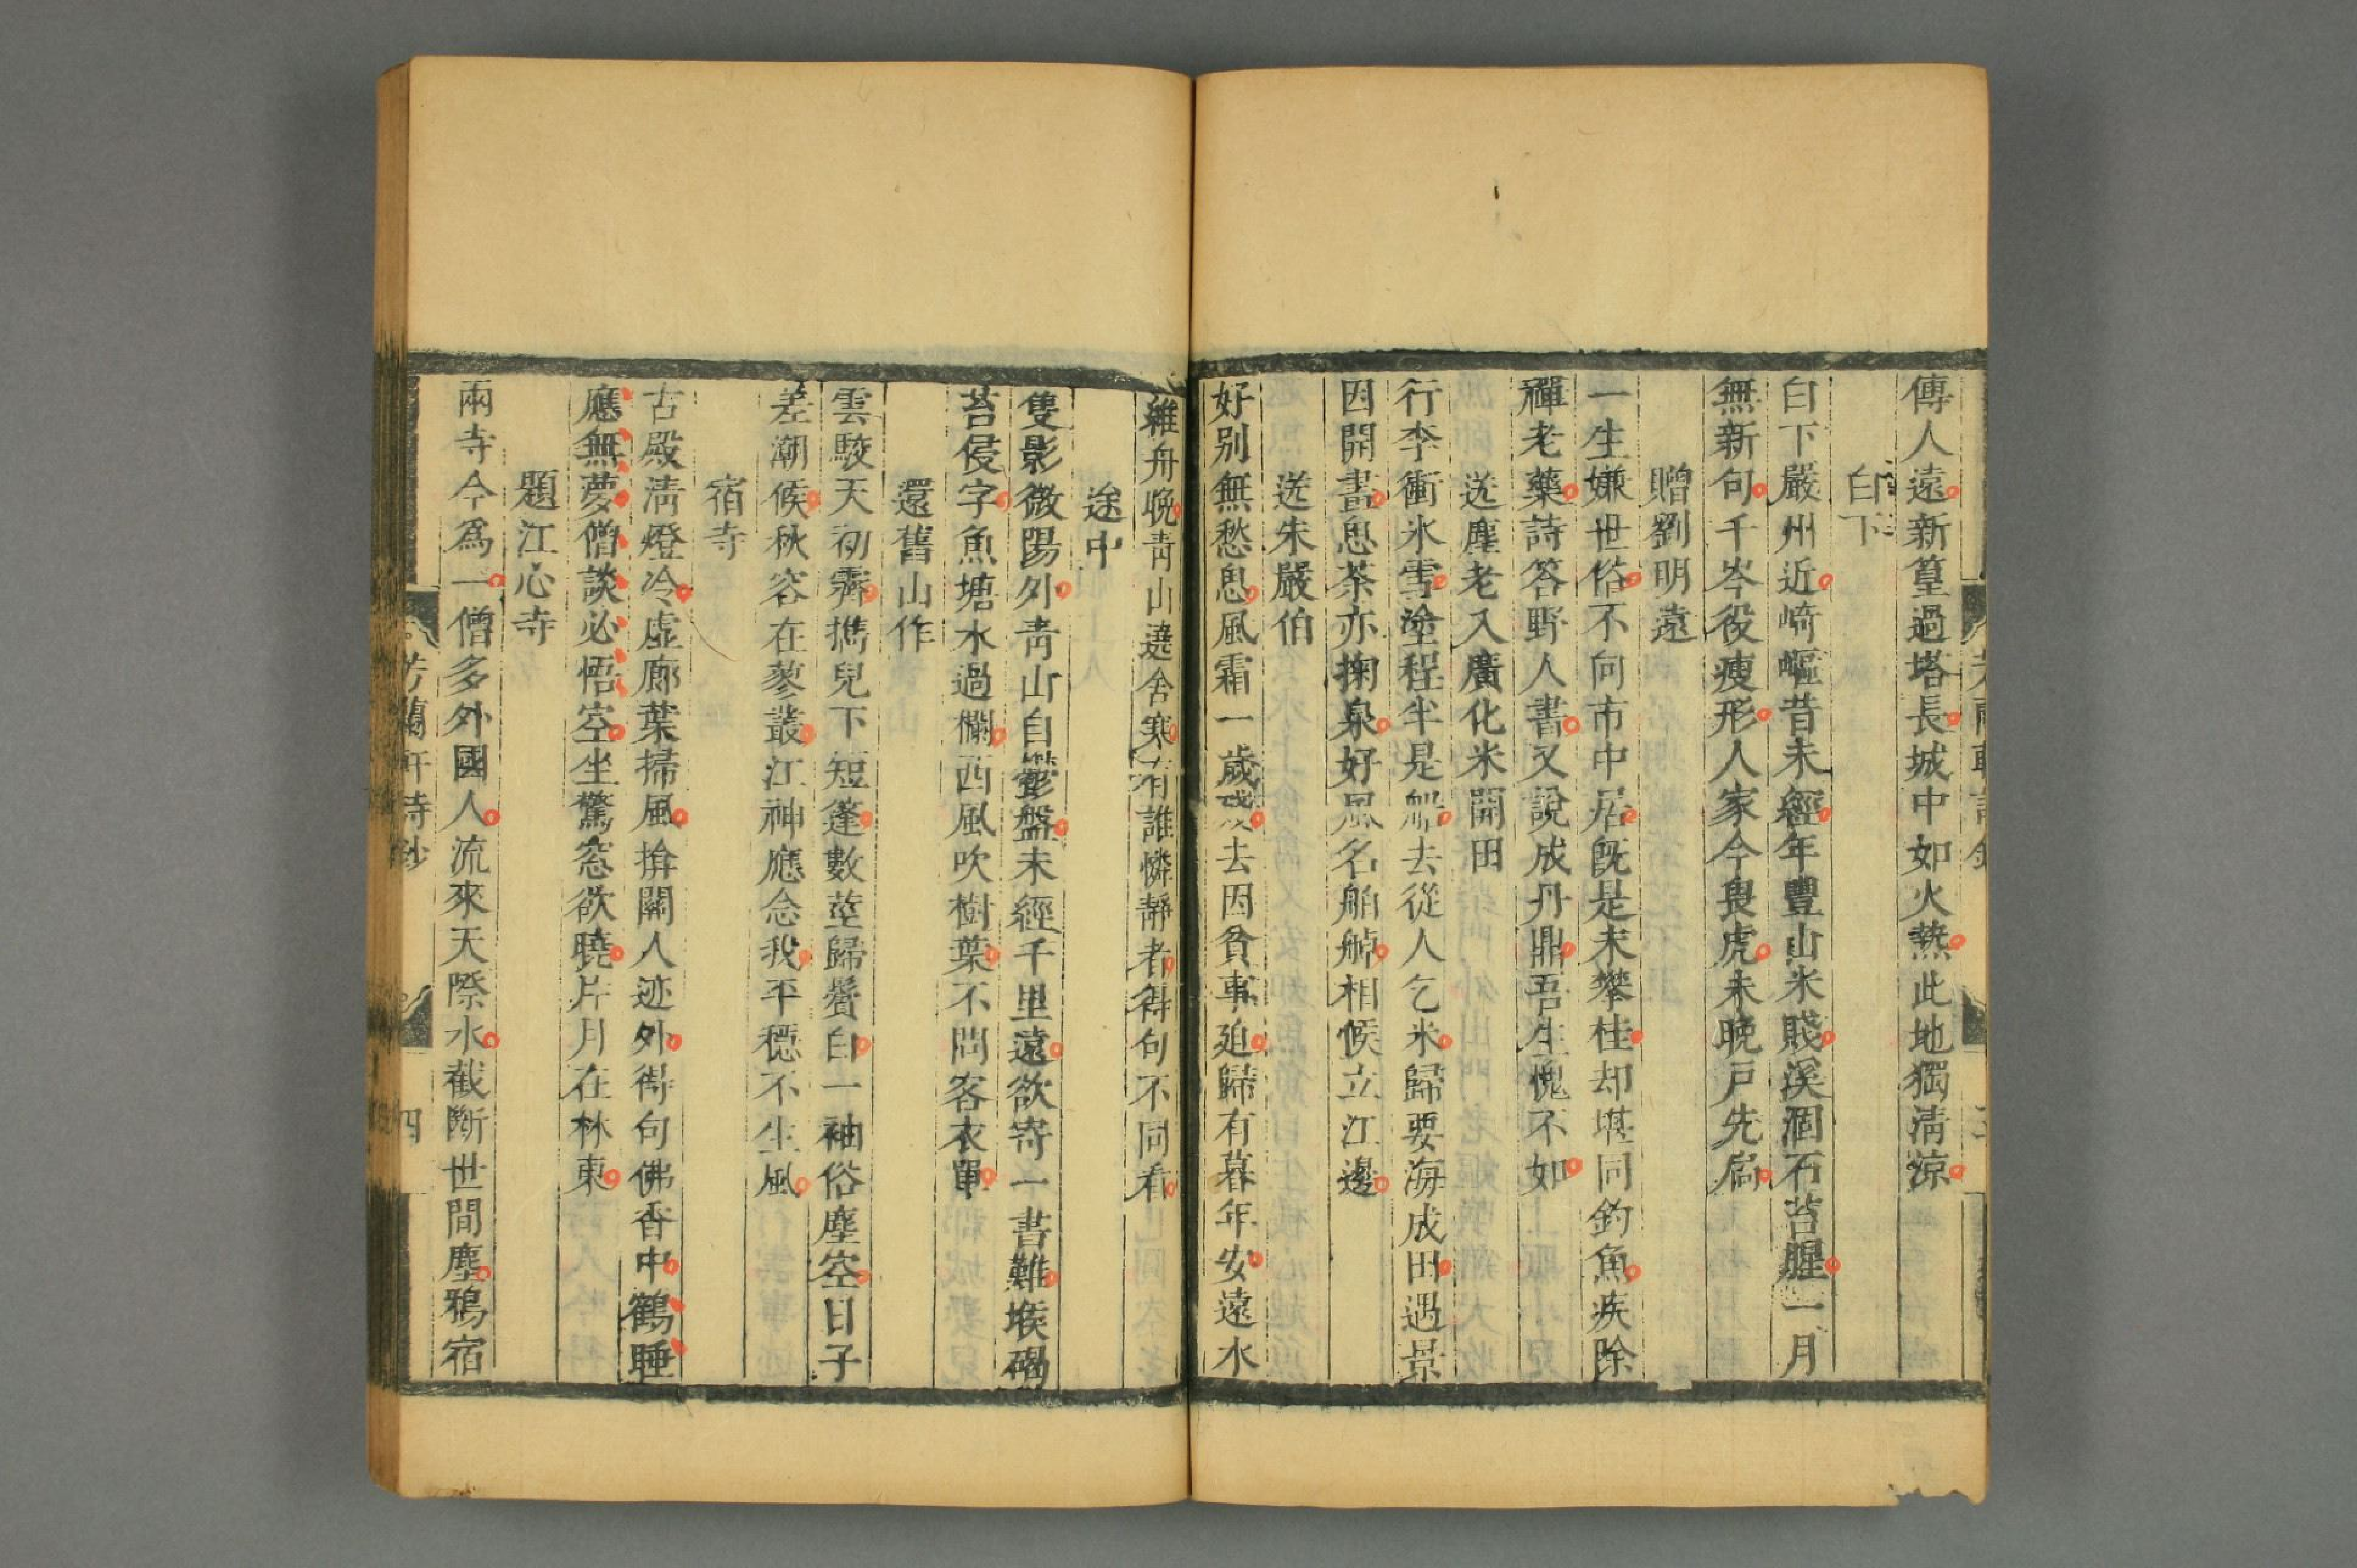 傳人遠新篁過塔長城中如火熱此地獨淸凉
白下
白下嚴州近崎嶇昔未經年豐山米賤溪涸石苔腥一月
無新句千岑役瘦形人家今畏虎未晚戸先扃
贈劉明遠
一生嫌世俗不向市中居旣是未攀桂却堪同釣魚疾除
禪老藥詩答野人書又說成丹鼎吾生愧不如
送塵老入廣化米開田
行李衝氷雪塗程半是船去從人乞米歸要海成田遇景
因開畫思茶亦掬泉好風名舶㠶相候立江邊
送朱嚴伯
好别無愁思風霜一歲殘去因貧事廹歸有暮年安遠水
維舟晚靑山遶舍寒有誰憐靜者得句不同看
途中
隻影微陽外靑山自鬱盤未經千里遠欲寄一書難堠碣
苔侵字魚塘水過欄西風吹樹葉不問客衣單
還舊山作
雲駮天初霽攜兒下短篷數莖歸鬢白一袖俗塵空日子
差潮候秋容在蓼叢江神應念我平穩不生風
宿寺
古殿淸燈冷虚廊葉掃風揜關人迹外得句佛香中鶴睡
應無夢僧談必悟空坐驚窓欲曉片月在林東
題江心寺
兩寺今爲一僧多外國人流來天際水截斷世間塵鴉宿
芳蘭軒詩鈔
四